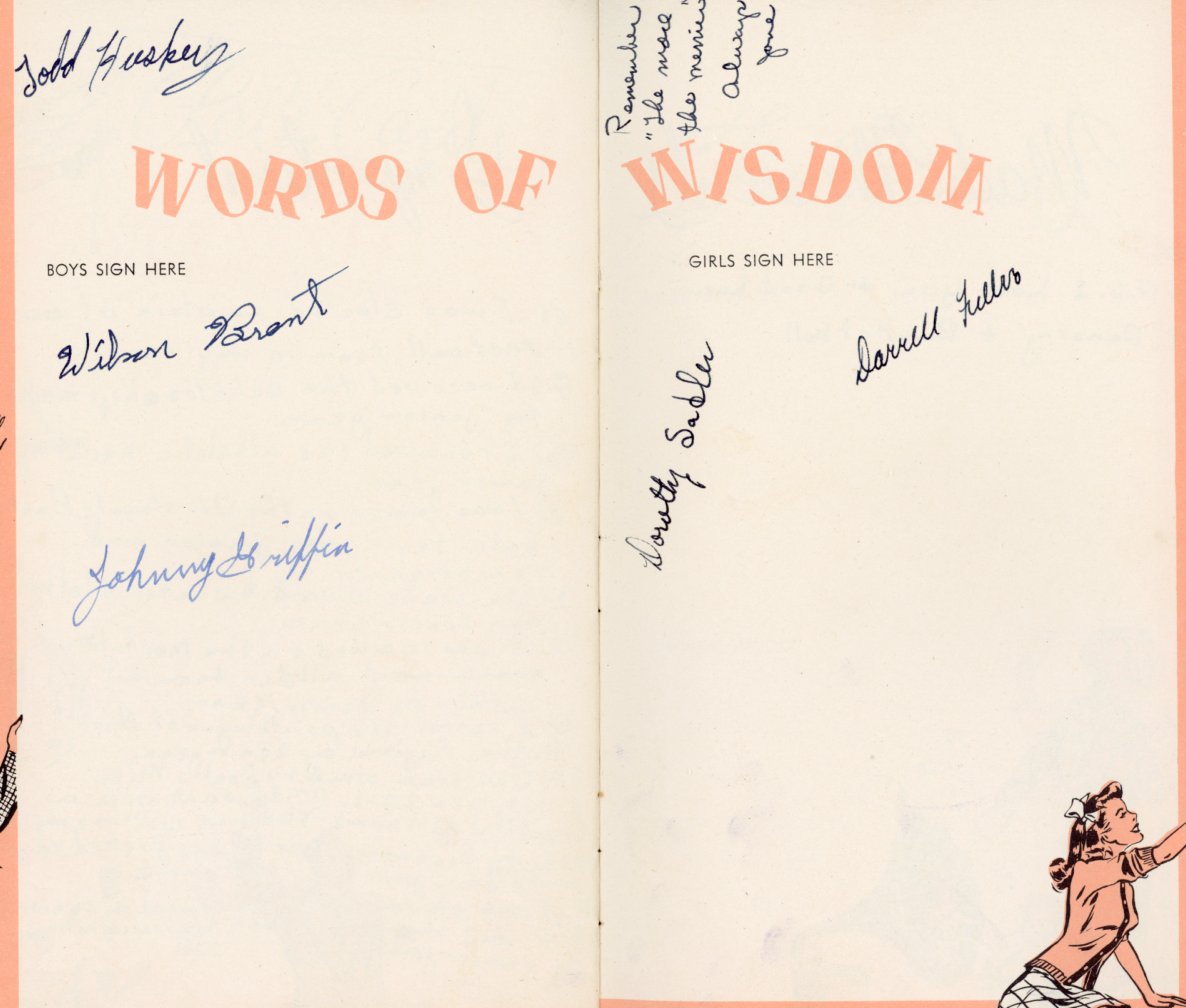 Todd Huskey
WORDS OF
BOYS SIGN HERE
Wilson Brent
Johnny Griffin
Remember
"The more
the merrier"
Always
Jane
WISDOM
GIRLS SIGN HERE
Darrell Fuller
Dorothy Sadler